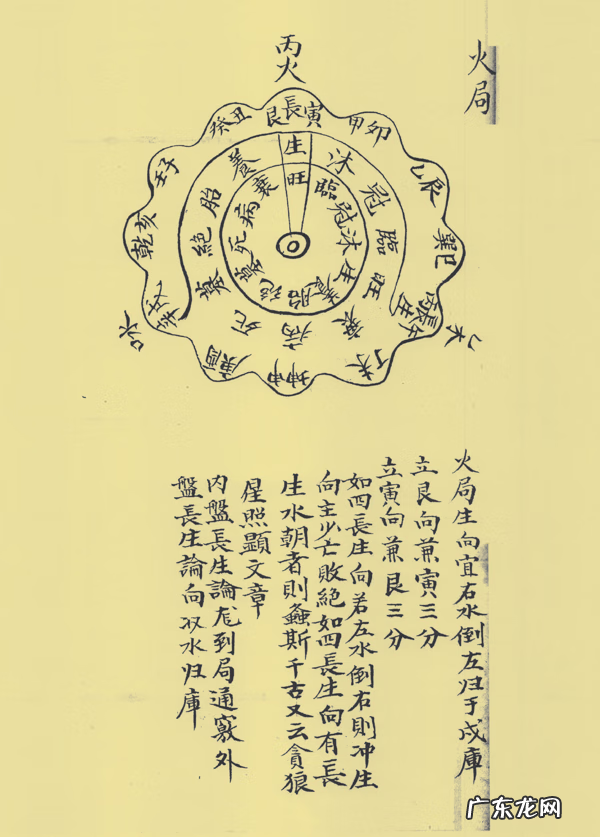 火局
丙火
艮長寅
甲卯
乙辰
巽巳
丁未
坤申
庚酉
乾亥
壬子
癸丑
生
沐
冠
臨
旺
衰
病
死
絕
胎
養
旺
臨
冠
沐
生
養
胎
絕
死
病
衰
乙木
火局生向宜右水倒左归于戍庫
立艮向兼寅三分
立寅向兼艮三分
如四長生向若左水倒右則冲生
向主少亡敗絕如四長生向有長
生水朝者則螽斯千古又云貪狼
星照顯文章
内盤長生論龙到局通竅外
盤長生論向収水归庫
广东龙网